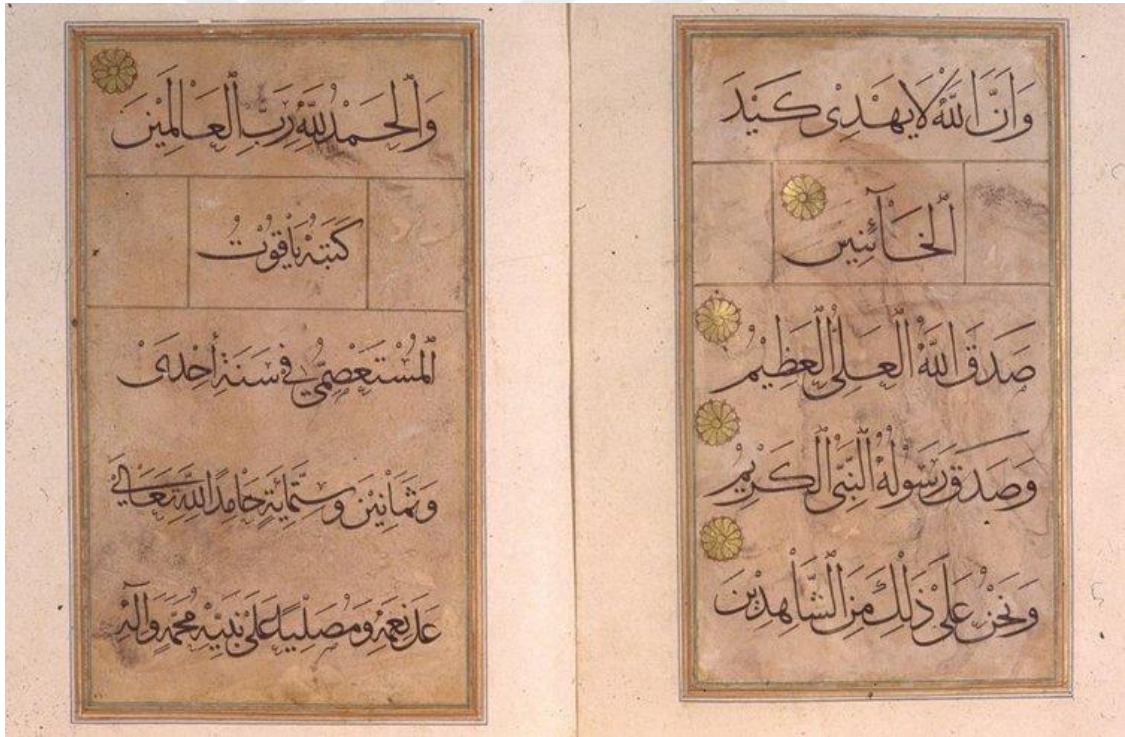 وَأَنَّ ٱللَّهَ لَا يَهْدِى كَيْدَ
ٱلْخَآئِنِين
صَدَقَ اللَّهُ الْعَلِىُّ الْعَظِيمُ
وَصَدَقَ رَسُولُهُ النَّبِىُّ الْكَرِيمُ
وَنَحْنُ عَلَىٰ ذَٰلِكَ مِنَ الشَّاهِدِينَ
وَالْحَمْدُ لِلَّهِ رَبِّ الْعَالَمِينَ
كَتَبَهُ يَاقُوتُ
الْمُسْتَعْصِمِىُّ فِى سَنَةِ أحْدَى
وَثَمَانِينَ وَسِتِّمِائَةٍ حَامِدًا لِلَّهِ تَعَالَىٰ
عَلَىٰ نِعَمِهِ وَمُصَلِّيًا عَلَىٰ نَبِيِّهِ مُحَمَّدٍ وَآلِهِ